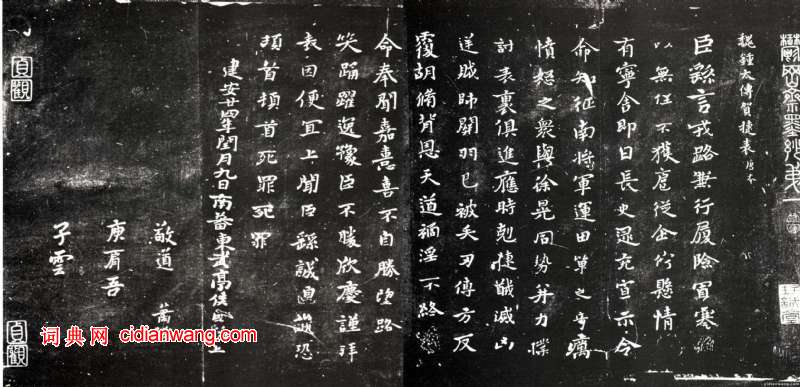 鬱岡齋墨妙第一
魏鍾太傅賀捷表唐本
臣繇言戎路兼行履險冒寒臣
以無任不獲扈從企佇懸情
有寧舍即日長史逯充宣示令
命知征南將軍運田單之奇厲
憤怒之衆與徐晃同勢并力撲
討表裏俱進應時剋捷馘滅凶
逆賊帥關羽已被矢刃傅方反
覆胡脩背恩天道禍淫不終
命奉聞嘉憙喜不自勝望路
笑踊躍逸豫臣不勝欣慶謹拜
表因便宜上聞臣繇誠惶誠恐
頓首頓首死罪死罪
建安廿四年閏月九日南蕃東武亭侯臣繇上
敬道
庾肩吾
子雲
貞觀
貞觀
词典网 cidianwang.com
cidianwang.com